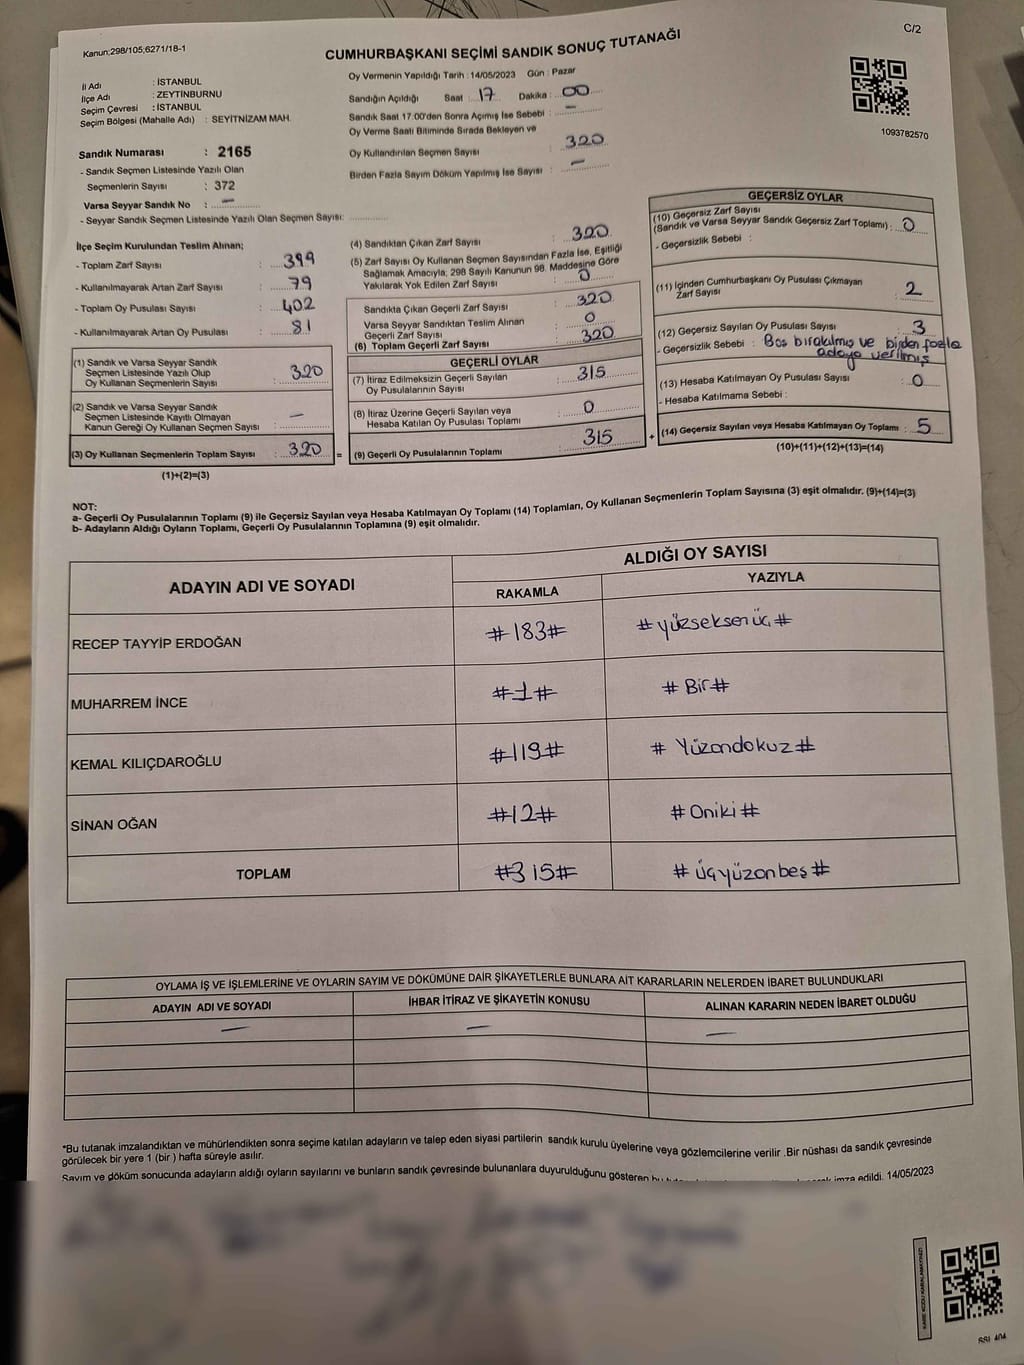 Kanun;298/105;6271/18-1
C/2
CUMHURBAŞKANI SEÇİMİ SANDIK SONUÇ TUTANAĞI
İl Adı : İSTANBUL
İlçe Adı : ZEYTİNBURNU
Seçim Çevresi : İSTANBUL
Seçim Bölgesi (Mahalle Adı) : SEYİTNİZAM MAH.
Sandık Numarası : 2165
- Sandık Seçmen Listesinde Yazılı Olan
Seçmenlerin Sayısı : 372
Varsa Seyyar Sandık No : —
- Seyyar Sandık Seçmen Listesinde Yazılı Olan Seçmen Sayısı:
Oy Vermenin Yapıldığı Tarih : 14/05/2023 Gün : Pazar
Sandığın Açıldığı Saat : 17 Dakika : 00
Sandık Saat 17.00'den Sonra Açımış İse Sebebi : —
Oy Verme Saati Bitiminde Sırada Bekleyen ve
Oy Kullandırılan Seçmen Sayısı : 320
Birden Fazla Sayım Döküm Yapılmış İse Sayısı : —
1093782570
İlçe Seçim Kurulundan Teslim Alınan;
- Toplam Zarf Sayısı : 399
- Kullanılmayarak Artan Zarf Sayısı : 79
- Toplam Oy Pusulası Sayısı : 402
- Kullanılmayarak Artan Oy Pusulası : 81
(1) Sandık ve Varsa Seyyar Sandık
Seçmen Listesinde Yazılı Olup
Oy Kullanan Seçmenlerin Sayısı : 320
(2) Sandık ve Varsa Seyyar Sandık
Seçmen Listesinde Kayıtlı Olmayan
Kanun Gereği Oy Kullanan Seçmen Sayısı : —
(3) Oy Kullanan Seçmenlerin Toplam Sayısı : 320
(1)+(2)=(3)
(4) Sandıktan Çıkan Zarf Sayısı : 320
(5) Zarf Sayısı Oy Kullanan Seçmen Sayısından Fazla İse, Eşitliği
Sağlamak Amacıyla; 298 Sayılı Kanunun 98. Maddesine Göre
Yakılarak Yok Edilen Zarf Sayısı : 0
Sandıkta Çıkan Geçerli Zarf Sayısı : 320
Varsa Seyyar Sandıktan Teslim Alınan
Geçerli Zarf Sayısı : 0
(6) Toplam Geçerli Zarf Sayısı : 320
GEÇERLİ OYLAR
(7) İtiraz Edilmeksizin Geçerli Sayılan
Oy Pusulalarının Sayısı : 315
(8) İtiraz Üzerine Geçerli Sayılan veya
Hesaba Katılan Oy Pusulası Toplamı : 0
= (9) Geçerli Oy Pusulalarının Toplamı : 315
GEÇERSİZ OYLAR
(10) Geçersiz Zarf Sayısı
(Sandık ve Varsa Seyyar Sandık Geçersiz Zarf Toplamı) : 0
- Geçersizlik Sebebi :
(11) İçinden Cumhurbaşkanı Oy Pusulası Çıkmayan
Zarf Sayısı : 2
(12) Geçersiz Sayılan Oy Pusulası Sayısı : 3
- Geçersizlik Sebebi : Boş bırakılmış ve birden fazla
adaya verilmiş
(13) Hesaba Katılmayan Oy Pusulası Sayısı : 0
- Hesaba Katılmama Sebebi :
+ (14) Geçersiz Sayılan veya Hesaba Katılmayan Oy Toplamı : 5
(10)+(11)+(12)+(13)=(14)
NOT:
a- Geçerli Oy Pusulalarının Toplamı (9) ile Geçersiz Sayılan veya Hesaba Katılmayan Oy Toplamı (14) Toplamları, Oy Kullanan Seçmenlerin Toplam Sayısına (3) eşit olmalıdır. (9)+(14)=(3)
b- Adayların Aldığı Oyların Toplamı, Geçerli Oy Pusulalarının Toplamına (9) eşit olmalıdır.
ADAYIN ADI VE SOYADI
ALDIĞI OY SAYISI
RAKAMLA YAZIYLA
RECEP TAYYİP ERDOĞAN #183# #yüzseksenüç#
MUHARREM İNCE #1# #Bir#
KEMAL KILIÇDAROĞLU #119# #Yüzondokuz#
SİNAN OĞAN #12# #Oniki#
TOPLAM #315# #üçyüzonbeş#
OYLAMA İŞ VE İŞLEMLERİNE VE OYLARIN SAYIM VE DÖKÜMÜNE DAİR ŞİKAYETLERLE BUNLARA AİT KARARLARIN NELERDEN İBARET BULUNDUKLARI
ADAYIN ADI VE SOYADI İHBAR İTİRAZ VE ŞİKAYETİN KONUSU ALINAN KARARIN NEDEN İBARET OLDUĞU
— — —
*Bu tutanak imzalandıktan ve mühürlendikten sonra seçime katılan adayların ve talep eden siyasi partilerin sandık kurulu üyelerine veya gözlemcilerine verilir .Bir nüshası da sandık çevresinde
görülecek bir yere 1 (bir ) hafta süreyle asılır.
Sayım ve döküm sonucunda adayların aldığı oyların sayılarını ve bunların sandık çevresinde bulunanlara duyurulduğunu gösteren bu imza edildi. 14/05/2023